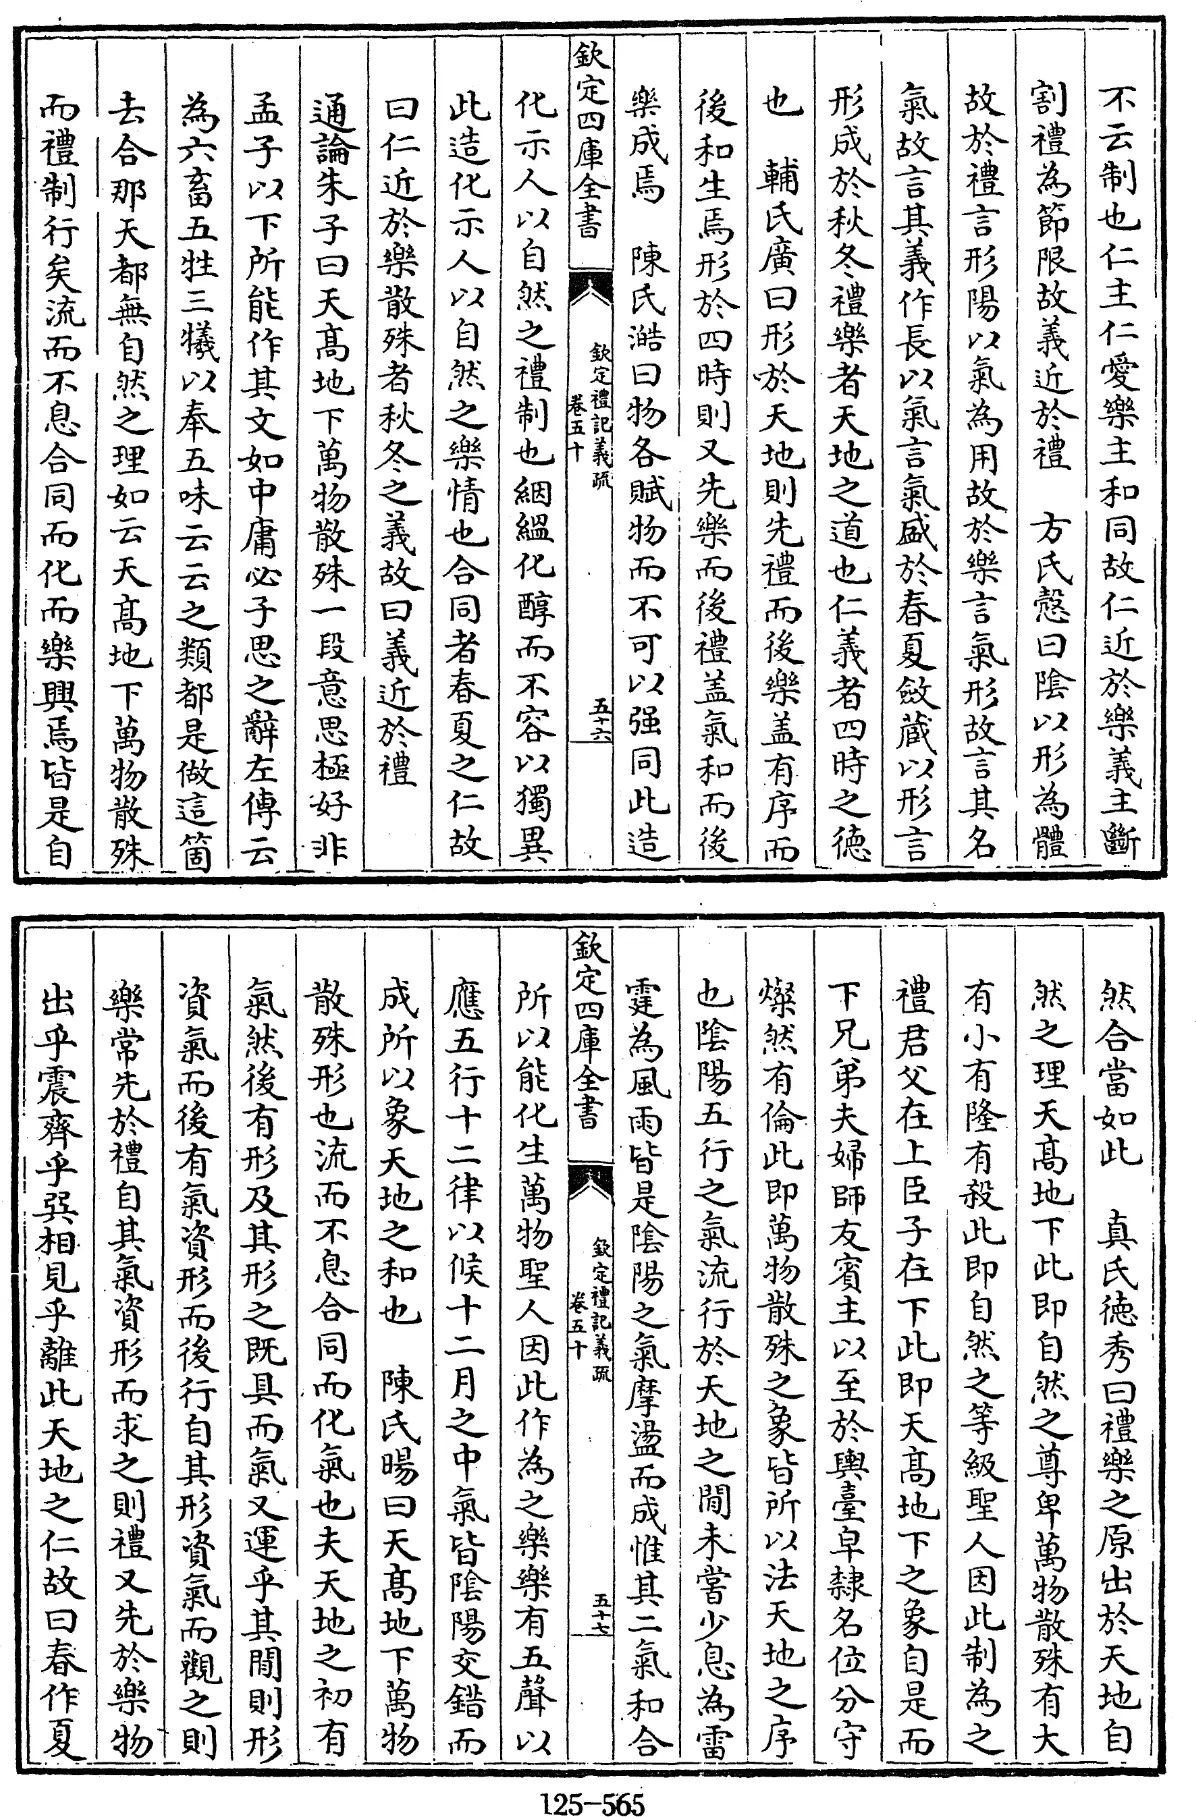 不云制也仁主仁愛樂主和同故仁近於樂義主斷
割禮為節限故義近於禮　方氏慤曰陰以形為體
故於禮言形陽以氣為用故於樂言氣形故言其名
氣故言其義作長以氣言氣盛於春夏斂蔵以形言
形成於秋冬禮樂者天地之道也仁義者四時之徳
也　輔氏廣曰形於天地則先禮而後樂盖有序而
後和生焉形於四時則又先樂而後禮盖氣和而後
樂成焉　陳氏澔曰物各賦物而不可以强同此造
欽定四庫全書
欽定禮記義疏
卷五十
五十六
化示人以自然之禮制也絪緼化醇而不容以獨異
此造化示人以自然之樂情也合同者春夏之仁故
曰仁近於樂散殊者秋冬之義故曰義近於禮
通論朱子曰天髙地下萬物散殊一段意思極好非
孟子以下所能作其文如中庸必子思之辭左傳云
為六畜五牲三犧以奉五味云云之類都是做這箇
去合那天都無自然之理如云天髙地下萬物散殊
而禮制行矣流而不息合同而化而樂興焉皆是自
然合當如此　真氏徳秀曰禮樂之原出於天地自
然之理天髙地下此即自然之尊卑萬物散殊有大
有小有隆有殺此即自然之等級聖人因此制為之
禮君父在上臣子在下此即天髙地下之象自是而
下兄弟夫婦師友賓主以至於輿臺皁隸名位分守
燦然有倫此即萬物散殊之象皆所以法天地之序
也陰陽五行之氣流行於天地之間未嘗少息為雷
霆為風雨皆是陰陽之氣摩盪而成惟其二氣和合
欽定四庫全書
欽定禮記義疏
卷五十
五十七
所以能化生萬物聖人因此作為之樂樂有五聲以
應五行十二律以候十二月之中氣皆陰陽交錯而
成所以象天地之和也　陳氏暘曰天髙地下萬物
散殊形也流而不息合同而化氣也夫天地之初有
氣然後有形及其形之既具而氣又運乎其間則形
資氣而後有氣資形而後行自其形資氣而觀之則
樂常先於禮自其氣資形而求之則禮又先於樂物
出乎震齊乎巽相見乎離此天地之仁故曰春作夏
125-565